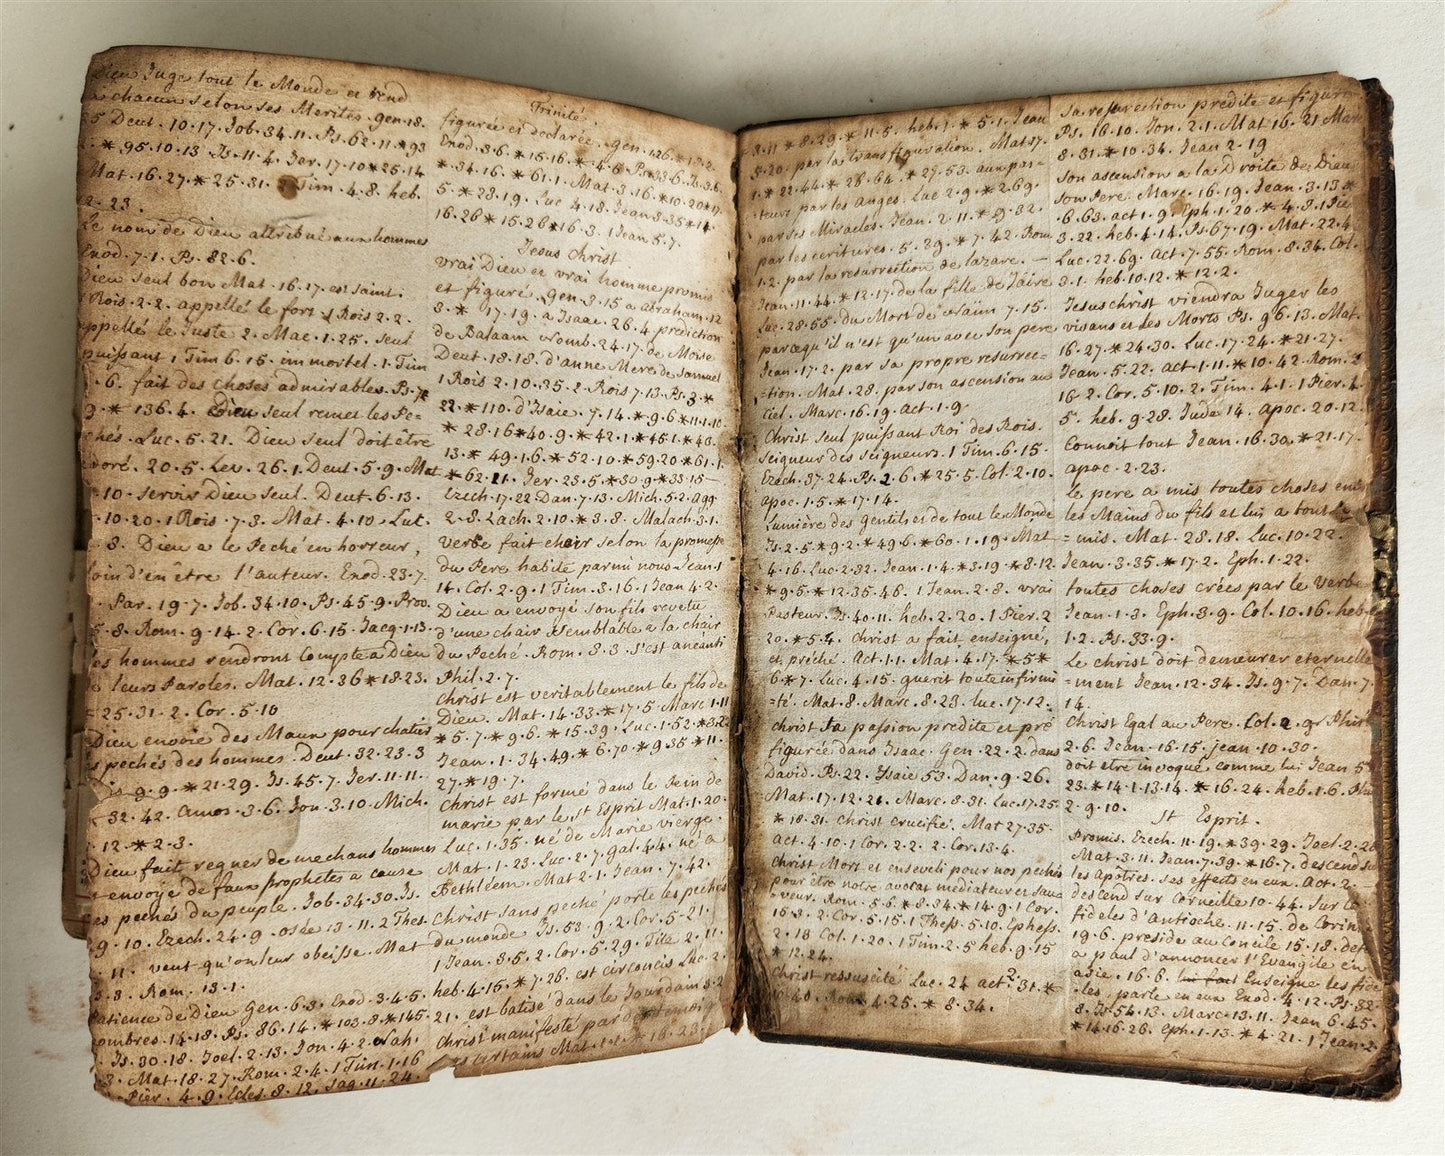 Dieu Juge tout le Monde et rend
a chacun selon ses Merites. gen. 18.
25 Deut. 10. 17. Job. 34. 11. Ps. 62. 11. * 93
* 95. 10. 13 Is. 11. 4. Jer. 17. 10 * 25. 14
Mat. 16. 27. * 25. 31. Tim. 4. 8. heb.
12. 23.
Le nom de Dieu attribué aux hommes
Exod. 7. 1. Ps. 82. 6.
Dieu seul bon Mat. 16. 17. est saint.
1 Rois. 2. 2. appellé le fort 1 Rois 2. 2.
appellé le Juste 2. Mac. 1. 25. seul
puissant 1 Tim 6. 15. immortel. 1 Tim
6. fait des choses admirables. Ps. 7
9. * 136. 4. Dieu seul remet les Pe=
chés. Luc. 5. 21. Dieu seul doit être
adoré. 20. 5. Lev. 26. 1. Deut. 5. 9. Mat
10. servir Dieu seul. Deut. 6. 13.
10. 20. 1 Rois. 7. 3. Mat. 4. 10. Luc.
8. Dieu a le Peché en horreur,
loin d'en être l'auteur. Exod. 23. 7.
Par. 19. 7. Job. 34. 10. Ps. 45. 9. Prov.
5. 8. Rom. 9. 14. 2. Cor. 6. 15 Jacq. 1. 13.
les hommes rendront Compte a Dieu
leurs Paroles. Mat. 12. 36 * 18. 23.
25. 31. 2. Cor. 5. 10
Dieu envoie des Maux pour chatier
pechés des hommes. Deut. 32. 23. 3
9. 9. * 21. 29. Is. 45. 7. Jer. 11. 11.
32. 42. Amos. 3. 6. Jon. 3. 10. Mich.
1. 12. * 2. 3.
Dieu fait regner de mechans hommes
envoye de faux prophetes a cause
des pechés du peuple. Job. 34. 30. Is.
9. 10. Ezech. 24. 9. osée 13. 11. 2 Thes.
11. veut qu'on leur obeisse. Mat
3. 3. Rom. 13. 1.
Patience de Dieu Gen. 6. 3. Exod. 3. 4. 5.
nombres. 14. 18. Ps. 86. 14. * 103. 8. * 145.
Is. 30. 18. Joel. 2. 13. Jon. 4. 2. Nah.
3. Mat. 18. 27. Rom. 2. 4. 1 Tim. 1. 16
Pier. 4. 9. Ecles. 8. 12. Jaq. 11. 24.
Trinité.
figurée et Declarée. gen. 1 26. * 18. 2.
Exod. 3. 6. * 15. 16. * 4. 5 Ps. 33. 6. Is. 3. 6.
* 34. 16. * 61. 1. Mat. 3. 16. * 10. 20 * 17.
5. * 28. 19. Luc. 4. 18. Jean 3. 35 * 14.
16. 26 * 15. 26 * 16. 3. 1 Jean 5. 7.
Jesus Christ
vrai Dieu et vrai homme promis
et figuré. Gen. 3. 15 a abraham. 12
3. * 17. 19. a Isaac. 26. 4 prediction
de Balaam Nomb. 24. 17. de Moïse
Deut. 18. 18. d'anne Mere de Samuel
1 Rois 2. 10. 35. 2. Rois 7. 13. Ps. 3. *
22. * 110. d'Isaie. 7. 14. * 9. 6 * 11. 1. 10
* 28. 16 * 40. 9. * 42. 1. * 45. 1. * 46.
13. * 49. 1 6. * 52. 10. * 59. 20 * 61. 1.
* 62. 11. Jer. 23. 5. * 30. 9. * 33. 15—
Ezech. 17. 22. Dan. 7. 13. Mich. 5. 2. agg
2. 8. Zach. 2. 10. * 3. 8. Malach. 3. 1.
verbe fait chair selon la promesse
du Pere habite parmi nous Jean. 1
14. Col. 2. 9. 1 Tim. 3. 16. 1 Jean 4. 2.
Dieu a envoyé son fils revetu
d'une chair semblable a la chair
du Peché. Rom. 8. 3. s'est anéanti
Phil. 2. 7.
Christ est veritablement le fils de
Dieu. Mat. 14. 33. * 17. 5. Marc 1. 11
* 5. 7. * 9. 6. * 15. 39. Luc. 1. 52. * 3. 22
Jean. 1. 34. 49. * 6. 70. * 9. 35 * 11.
27. * 19. 7.
Christ est formé dans le sein de
marie par le St Esprit Mat. 1. 20.
Luc. 1. 35. né de Marie vierge.
Mat. 1. 23. Luc. 2. 7. gal. 4. 4. né a
Bethléem. Mat 2. 1. Jean. 7. 42.
Christ sans peché porte les pechés
du monde Is. 53. 9. 2. Cor. 5. 21.
1 Jean. 3. 5. 2. Cor. 5. 29. Tite 2. 11.
heb. 4. 15. * 7. 26. est circoncis Luc. 2.
21. est batisé dans le Jourdain 3. 2
Christ manifesté par
Mat. 1. 1. * 16. 23.
3. 11 * 8. 29. * 11. 5. heb. 1. * 5. 1. Jean
5. 20. par la transfiguration. Mat 17.
1. * 22. 44. * 26. 64. * 27. 53. aux pas=
teurs par les anges. Luc 2. 9. * 2. 69.
par ses Miracles. Jean. 2. 11. * 9. 32.
par les ecritures. 5. 39. * 7. 42. Rom
1. 2. par la resurrection de lazare. —
Jean. 11. 44. * 12. 17. de la fille de Jaïre
Luc. 28. 55. du Mort de Naïm 7. 15.
parcequ'il n'est qu'un avec son pere
Jean. 17. 2. par sa propre resurrec=
=tion. Mat. 28. par son ascension au
ciel. Marc. 16. 19. Act. 1. 9.
Christ seul puissant Roi des Rois.
Seigneur des seigneurs. 1 Tim. 6. 15.
Ezech. 37. 24. Ps. 2. 6. * 25. 5. Col. 2. 10.
apoc. 1. 5. * 17. 14.
Lumiére des gentils et de tout le Monde
Is. 2. 5 * 9. 2. * 49. 6. * 60. 1. 19. Mat
4. 16. Luc. 2. 32. Jean. 1. 4. * 3. 19 * 8. 12
* 9. 5 * 12. 35. 46. 1 Jean. 2. 8. vrai
Pasteur. Is. 40. 11. heb. 2. 20. 1 Pier. 2
20. * 5. 4. Christ a fait enseigné,
et préché. Act. 1. 1. Mat. 4. 17. * 5 *
6. * 7. Luc. 4. 15. guerit toute infirmi
=té. Mat. 8. Marc. 8. 23. Luc. 17. 12.
Christ sa passion predite et pré
figurée dans Isaac. Gen. 22. 2. dans
David. Ps. 22. Isaie 53. Dan. 9. 26.
Mat. 17. 12. 21. Marc. 8. 31. Luc. 17. 25
* 18. 31. Christ crucifié. Mat 27. 35.
Act. 4. 10. 1 Cor. 2. 2. 2. Cor. 13. 4.
Christ Mort et enseveli pour nos pechés
pour être notre avocat mediateur et sau=
=veur. Rom. 5. 6. * 8. 34. * 14. 9. 1 Cor.
15. 3. 2. Cor. 5. 15. 1 Thess. 5. 10. Ephess.
2. 18 Col. 1. 20. 1 Tim. 2. 5 heb. 9. 15
* 12. 24.
Christ ressuscité Luc. 24 act. 2. 31. *
10. 40. Rom 4. 25. * 8. 34.
Sa resurrection predite et figurée
Ps. 16. 10. Jon. 2. 1. Mat 16. 21 Marc
8. 31. * 10. 34. Jean 2. 19
Son ascension a la Droite de Dieu
son Pere. Marc. 16. 19. Jean. 3. 13 *
6. 63. act 1. 9. Eph. 1. 20. * 4. 8. 1 Pie
3. 22. heb. 4. 14. Ps. 67. 19. Mat. 22. 4
Luc. 22. 69. Act. 7. 55. Rom. 8. 34. Col.
3. 1. heb. 10. 12. * 12. 2.
Jesus christ viendra Juger les
vivans et les Morts Ps. 96. 13. Mat.
16. 27. * 24. 30. Luc. 17. 24. * 21. 27.
Jean. 5. 22. act. 1. 11. * 10. 42. Rom. 2
16 2. Cor. 5. 10. 2. Tim. 4. 1. 1 Pier. 4
5. heb. 9. 28. Jude 14. apoc. 20. 12.
Connoit tout Jean. 16. 30. * 21. 17.
apoc. 2. 23.
Le pere a mis toutes choses entre
les Mains du fils et lui a tout
=mis. Mat. 28. 18. Luc. 10. 22.
Jean. 3. 35. * 17. 2. Eph. 1. 22.
toutes choses crées par le Verbe
Jean. 1. 3. Eph. 3. 9. Col. 10. 16. heb.
1. 2. Ps. 33. 9.
Le christ doit demeurer eternelle
=ment Jean. 12. 34. Is. 9. 7. Dan. 7.
14.
Christ Egal au Pere. Col. 2. 9. Phili
2. 6. Jean. 16. 15. jean. 10. 30.
doit etre invoqué comme lui Jean 5
23. * 14. 1. 13. 14. * 16. 24. heb. 1. 6. Phi
2. 9. 10.
St Esprit.
Promis. Ezech. 11. 19. * 39. 29. Joel. 2. 28
Mat. 3. 11. Jean. 7. 39. * 16. 7. descend sur
les apôtres. ses effets en eux. Act. 2.
descend sur Corneille 10. 44. sur les
fideles d'Antioche. 11. 15. de Corin
19. 6. preside au Concile 15. 18. def
a paul d'annoncer l'Evangile en
asie. 16. 6. Enseigne les fide
=les, parle en eux Exod. 4. 12. Ps. 32.
8. Is. 54. 13. Marc. 13. 11. Jean 6. 45.
* 14. 16. 26. Eph. 1. 13. * 4. 21. 1 Jean. 2.